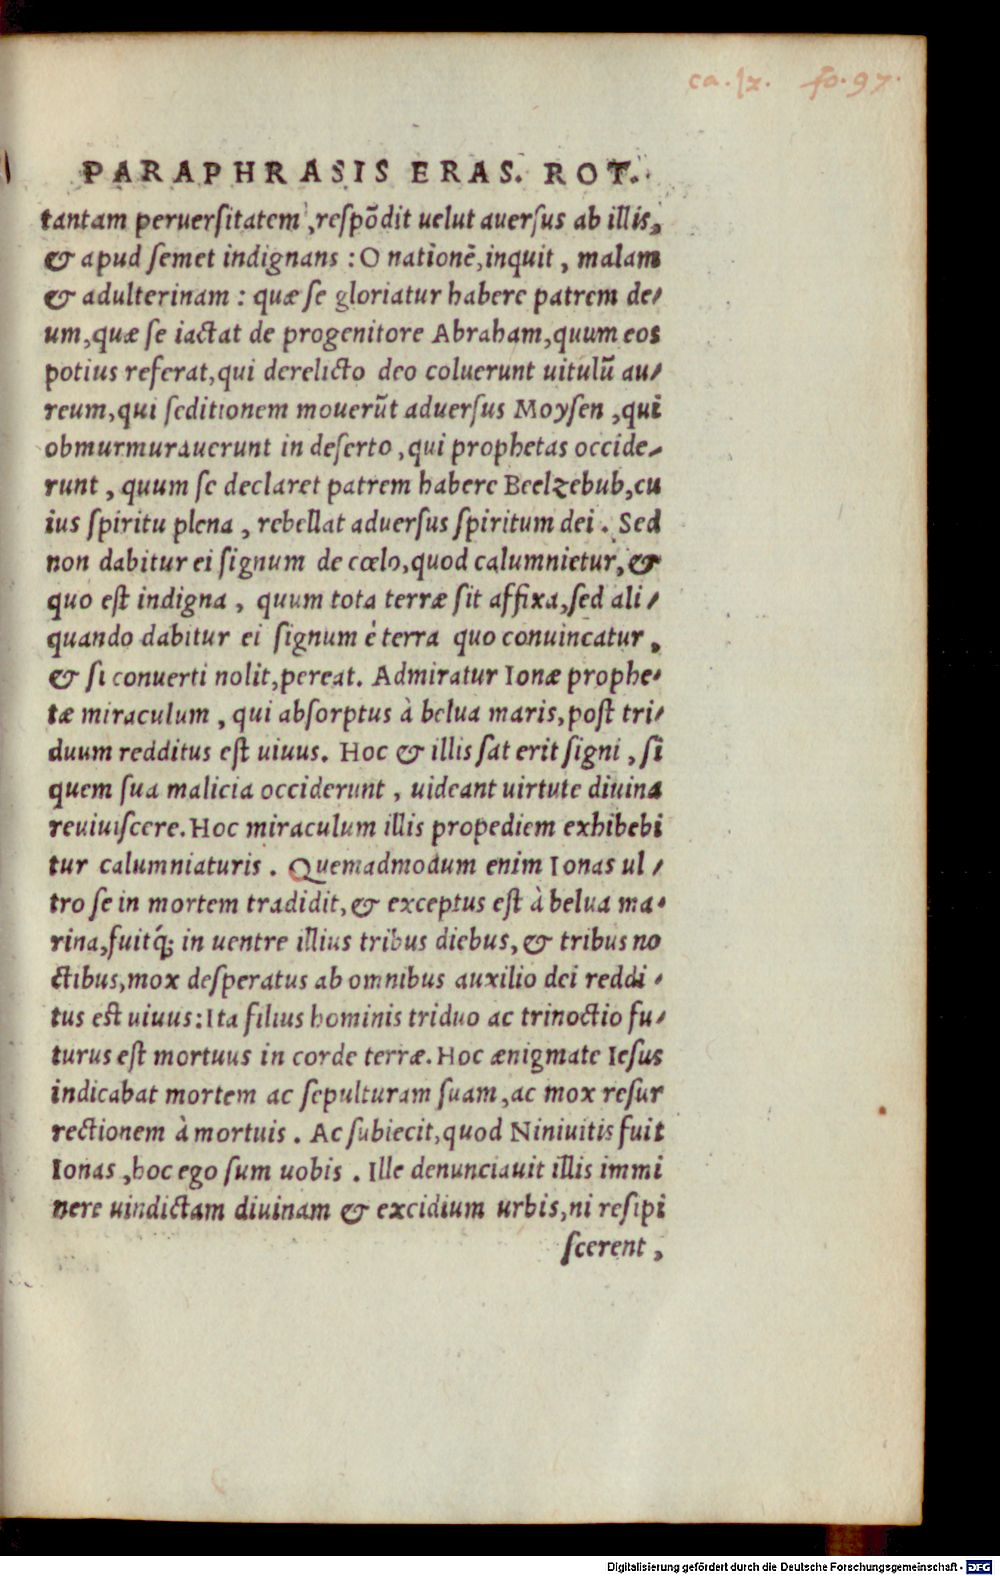 ca. 12. fo. 97.
PARAPHRASIS ERAS. ROT.
tantam peruersitatem, respõdit uelut auersus ab illis,
& apud semet indignans: O nationẽ, inquit, malam
& adulterinam: quæ se gloriatur habere patrem de/
um, quæ se iactat de progenitore Abraham, quum eos
potius referat, qui derelicto deo coluerunt uitulũ au/
reum, qui seditionem mouerũt aduersus Moysen, qui
obmurmurauerunt in deserto, qui prophetas occide/
runt, quum se declaret patrem habere Beelzebub, cu
ius spiritu plena, rebellat aduersus spiritum dei. Sed
non dabitur ei signum de cœlo, quod calumnietur, &
quo est indigna, quum tota terræ sit affixa, sed ali/
quando dabitur ei signum è terra quo conuincatur,
& si conuerti nolit, pereat. Admiratur Ionæ prophe/
tæ miraculum, qui absorptus à belua maris, post tri/
duum redditus est uiuus. Hoc & illis sat erit signi, si
quem sua malicia occiderunt, uideant uirtute diuina
reuiuiscere. Hoc miraculum illis propediem exhibebi
tur calumniaturis. Quemadmodum enim Ionas ul/
tro se in mortem tradidit, & exceptus est à belua ma/
rina, fuitq́; in uentre illius tribus diebus, & tribus no
ctibus, mox desperatus ab omnibus auxilio dei reddi/
tus est uiuus: Ita filius hominis triduo ac trinoctio fu/
turus est mortuus in corde terræ. Hoc ænigmate Iesus
indicabat mortem ac sepulturam suam, ac mox resur
rectionem à mortuis. Ac subiecit, quod Niniuitis fuit
Ionas, hoc ego sum uobis. Ille denunciauit illis immi
nere uindictam diuinam & excidium urbis, ni resipi
scerent,
Digitalisierung gefördert durch die Deutsche Forschungsgemeinschaft - DFG